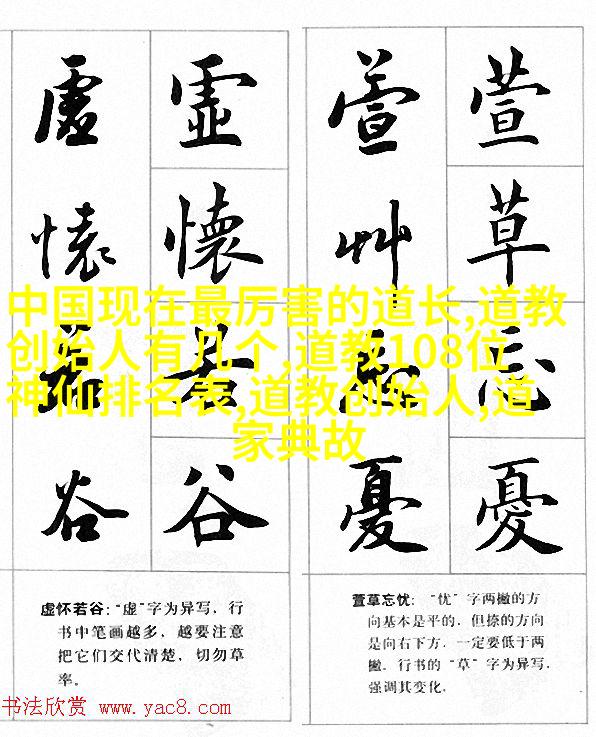 虚 虛 萱 萱
懷 懷 艸 草
若 若 忘 忘
谷 谷 憂 憂
中国现在最厉害的道长,道教
创始人有几个,道教108位
神仙排名表,道教创始人,道
家典故
虚怀若谷：“虚”字为异写，行
书中笔画越多，越要注意
把它们交代清楚，切勿草
率。
萱草忘忧：“忧”字两撇的方
向基本是平的，但捺的方向
是向右下方，一定要低于两
撇。行书的“草”字为异写，
强调其变化。
书法欣赏 www.yac8.com